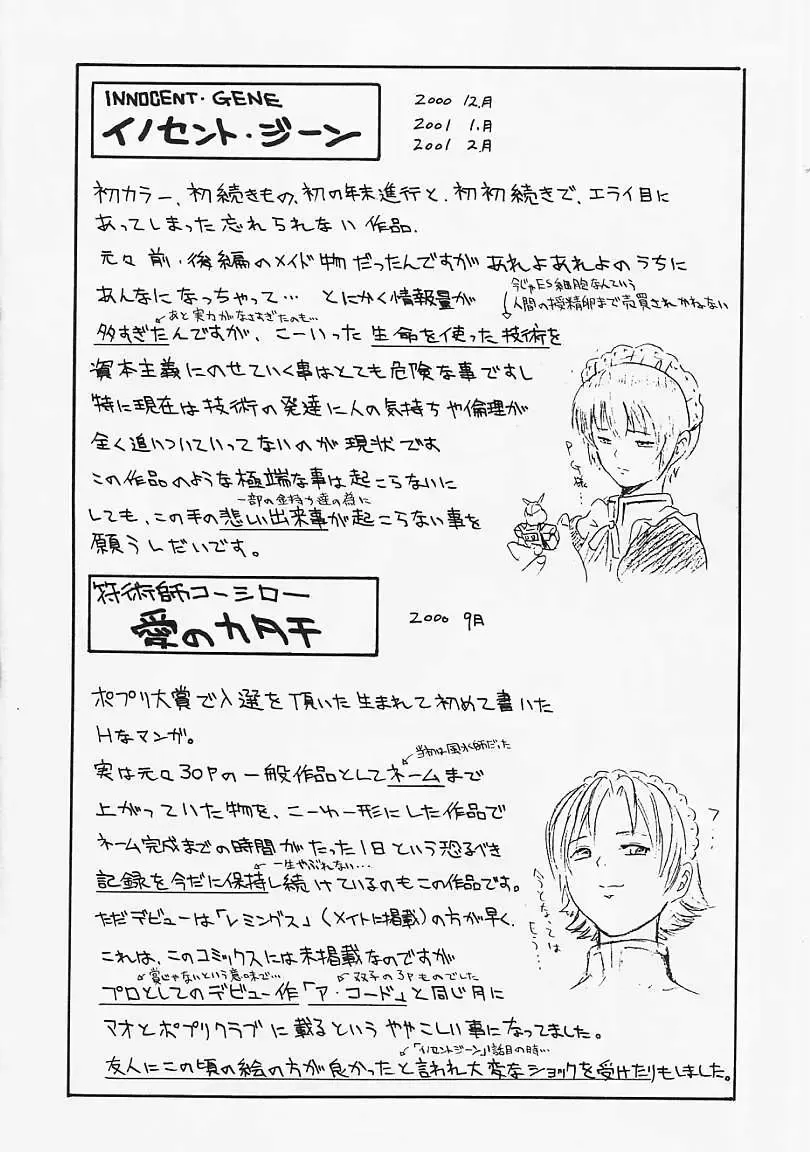 INNOCENT・GENE
イノセント・ジーン
2000 12月
2001 1月
2001 2月
初カラー、初続きもの、初の年末進行と、初初続きで、エライ目に
あってしまった忘れられない作品.
元々前・後編のメイド物だったんですがあれよあれよのうちに
あんなになっちゃって… とにかく情報量が
今じゃES細胞なんていう
人間の授精卵まで売買されかねない
あと実力がなさすぎたのも…
多すぎたんですが、こーいった生命を使った技術を
資本主義にのせていく事はとても危険な事ですし
特に現在は技術の発達に人の気持ちや倫理が
全く追いついていってないのが現状です
この作品のような極端な事は起こらないに
一部の金持ち達の為に
しても、この手の悲しい出来事が起こらない事を
願うしだいです。
PG様…
符術師コーシロー
愛のカタチ
2000 9月
ポプリ大賞で入選を頂いた生まれて初めて書いた
Hなマンガ。
当初は風水師だった
実は元々30Pの一般作品としてネームまで
上がっていた物を、こーゆー形にした作品で
ネーム完成までの時間がたった1日という恐るべき
一生やぶれない…
記録を今だに保持し続けているのもこの作品です。
ただデビューは「レミングス」(メイトに掲載)の方が早く、
これは、このコミックスには未掲載なのですが
賞じゃないという意味で…
双子の3Pものでした
プロとしてのデビュー作「ア・コード」と同じ月に
マオとポプリクラブに載るというややこしい事になってました。
「イノセントジーン」1話目の時…
友人にこの頃の絵の方が良かったと言われ大変なショックを受けたりもしました。
フ…
今となっては
もう…